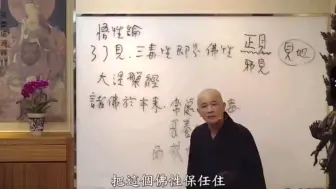 悟性論
了了見三毒性即是佛性
正見
邪見
見地
大涅槃經
諸佛於本來常
把這個佛性保任住